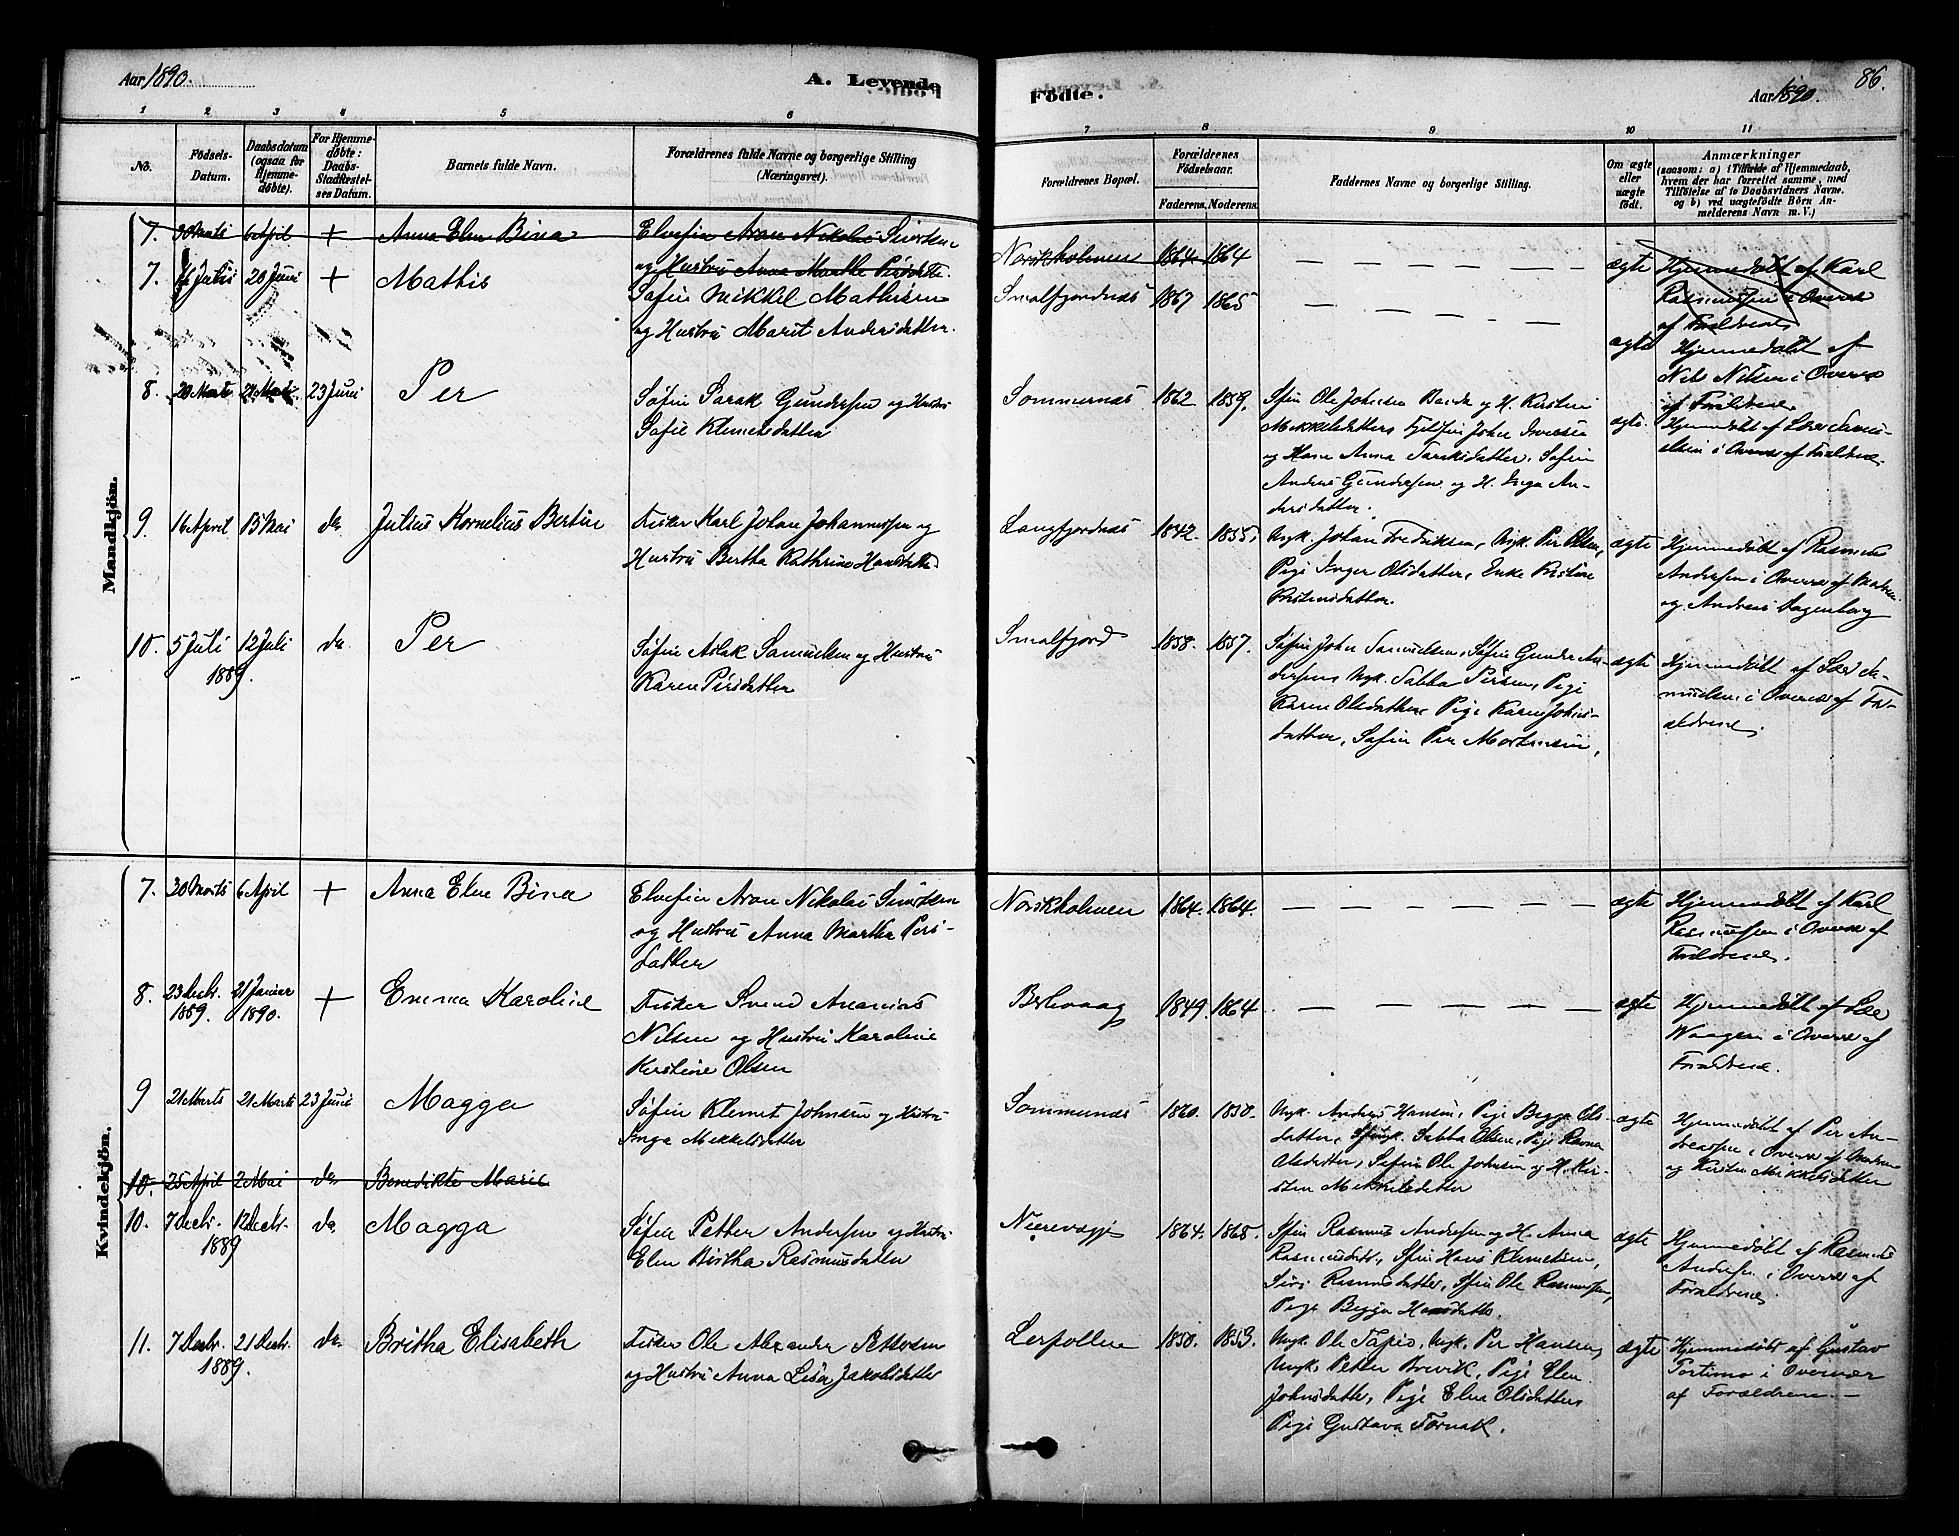 Aar 1890.
A. Levende
Fødte.
Aar 1890.
86.
1 2 3 4 5 6 7 8 9 10 11
No.
Fødsels-
Datum.
Daabsdatum
(ogsaa for
Hjemme-
døbte).
For Hjemme-
døbte:
Daabs-
Stadfæstel-
ses Datum.
Barnets fulde Navn.
Forældrenes fulde Navne og borgerlige Stilling
(Næringsvei).
Forældrenes Bopæl.
Forældrenes
Fødselsaar.
Faderens. Moderens.
Faddernes Navne og borgerlige Stilling.
Om ægte
eller
uægte
født.
Anmærkninger
(saasom: a) i Tilfælde af Hjemmedaab,
hvem der har forrettet samme, med
Tilføielse af to Daabsvidners Navne.
og b) ved uægtefødte Børn An-
melderens Navn m. V.)
Mandkjøn.
7. 30 Marts 6 April + Anna Elen Bina Elvefin Aron Nikolai Sivertsen
og Hustru Anna Marthe Persdatter
Norskholmen 1864 1864 — — — — ægte Hjemmedøbt af Karl
Rasmussen i Overv
af Forældrene
7. 20 Juni + Mathis
Søfin Mikkel Mathisen
og Hustru Marit Andersdatter.
Smalfjordnæs 1867 1865 — — — — ægte Hjemmedøbt af
Nils Nilsen i Overv
af Forældrene
8. 23 Juni Per Søfin Sarak Gundersen og Hustru
Sofie Klemetsdatter
Sommernæs 1862 1859. Sfin Ole Johnsen og H. Kirsten
Mikkelsdatter, John Iversen
og Kone Anna Sareksdatter, Søfin
Anders Gundersen og H. Inga An-
dersdatter.
ægte. Hjemmedøbt af Lær. Samu-
elsen i Overv af Forældrene
9. 16 April 15 Mai do Julius Kornelius Bertin Fisker Karl Johan Johannessen og
Hustru Bertha Kathrine Hansdatter
Langfjordnæs 1842. 1855. Ungk. Johan Fredriksen, Ungk. Per Olsen,
Pige Inger Olsdatter, Enke Kristine
Kristensdatter.
ægte Hjemmedøbt af Rasmus
Andersen i Overv af Moderen
og Andreas Hagenberg
10. 5 Juli 12 Juli do Per
1889.
Søfin Aslak Samuelsen og Hustru
Karen Persdatter
Smalfjord 1858. 1857. Søfin John Samuelsen, Søfin Gunder An-
dersen, Ungk. Sabba Persen, Pige
Karen Olsdatter, Pige Karen Johns-
datter, Søfin Per Mortensen,
ægte Hjemmedøbt af Lær. Sa-
muelsen i Overv af For-
ældrene.
Kvindekjøn.
7. 30 Marts 6 April + Anna Elen Bina Elvefin Aron Nikolai Sivertsen
og Hustru Anna Martha Pers-
datter
Norskholmen 1864. 1864. — — — — ægte Hjemmedøbt af Karl
Rasmussen i Overv af
Forældrene.
8. 23 Decbr. 21 Januar + Emma Karoline
1889. 1890.
Fisker Svend Ananias
Nilsen og Hustru Karoline
Kirstine Olsen
1849. 1864 — — — — ægte Hjemmedøbt af Lær
Waagen i Overv af
Forældrene.
9 21 Marts 21 Marts 23 Juni Magga Søfin Klemet Johnsen og Hustru
Inga Mikkelsdatter
Sommernæs 1860. 1850. Ungk. Anders Hansen, Pige Begga Ols-
datter, Ungk. Sabba Olsen, Pige Ravna
Olsdatter, Søfin Ole Johnsen og H. Kir-
sten Mikkelsdatter
ægte Hjemmedøbt af Per An-
dreassen i Overv af Moderen
og Kirsten Mikkelsdatter
10. 25 April 2 Mai do Benedikte Marie
10. 7 Decbr. 12 Decbr. do Magga
1889
Søfin Petter Andersen og Hustru
Elen Birtha Rasmusdatter
1864. 1865. Sfin Rasmus Andersen og H. Anna
Rasmusdatr, Sfin Hans Klemetsen,
Siri Rasmusdatter, Sfin Ole Rasmussen,
Pige Begga Hansdatter.
ægte Hjemmedøbt af Rasmus
Andersen i Overv af
Forældrene.
11. 7 Decbr. 21 Decbr. do Britha Elisabeth
1889.
Fisker Ole Alexander Pettersen
og Hustru Anna Lisa Jakobsdatter
Lerpollen 1850. 1853. Ungk. Ole Tapio, Ungk. Per Hansen,
Ungk. Petter Brevik, Pige Elen
Johnsdatter, Pige Elen Olsdatter
Pige Gustava Tornak.
ægte Hjemmedøbt af Gustav
Portimo i Overvær
af Forældren. —